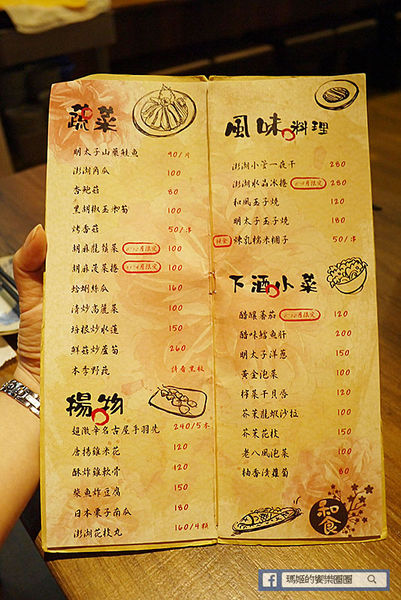 蔬菜
明太子山藥鮭魚 90/片
澎湖角瓜 100
杏鮑菇 80
黑胡椒玉米筍 100
烤香菇 50/串
胡麻龍鬚菜 100
胡麻菠菜捲 100
蛤蜊絲瓜 160
清炒高麗菜 100
培根炒水蓮 150
鮮菇炒蘆筍 260
本季野菜 請看黑板
揚物
超激辛名古屋手羽先 240/5本
唐揚雞米花 120
酥炸雞軟骨 120
柴魚炸豆腐 150
日本栗子南瓜 180
澎湖花枝丸 160/4顆
風味料理
澎湖小管一夜干 280
澎湖水晶冰捲 280
和風玉子燒 100
明太子玉子燒 180
烤乳糯米糰子 50/串
下酒小菜
醋釀蕃茄 120
醋味鱈魚肝 200
明太子洋蔥 150
黃金泡菜 100
檸菓干貝唇 120
芥茉龍蝦沙拉 100
芥茉花枝 150
老八風泡菜 100
柚香漬蘿蔔 80
和食
瑪姬的饗樂圈圈